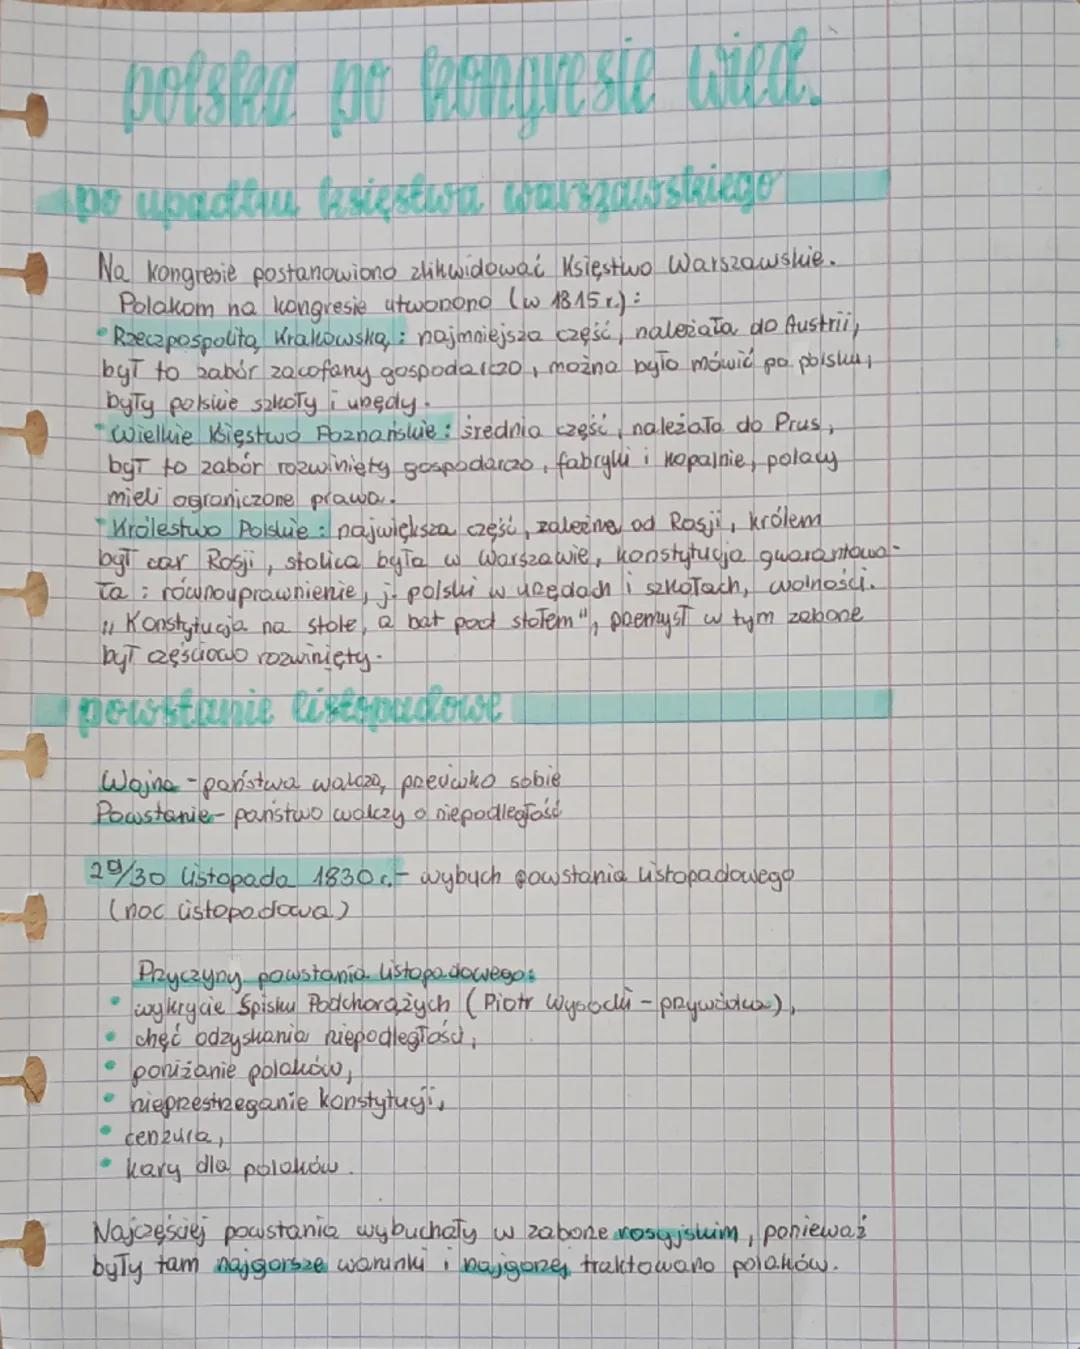 polska po kongresie wied.
po upadku księstwa warszawskiego
Na kongresie postanowiono zlikwidować Księstwo Warszawskie.
Polakom na kongresie utworzono (w 1815 r.):
• Rzeczpospolitą Krakowską: najmniejsza część, należała do Austrii,
był to zabór zacofany gospodarczo, można było mówić po polsku,
były polskie szkoły i urzędy.
• Wielkie Księstwo Poznańskie: średnia część, należało do Prus,
był to zabór rozwinięty gospodarczo, fabryki i kopalnie, polacy
mieli ograniczone prawa.
• Królestwo Polskie: największa część, zależna od Rosji, królem
był car Rosji, stolica była w Warszawie, konstytucja gwarantowa-
ła: równouprawnienie, j. polski w urzędach i szkołach, wolności.
"Konstytucja na stole, a bat pod stołem", przemysł w tym zaborze
był częściowo rozwinięty.
powstanie listopadowe
Wojna - państwa walczą przeciwko sobie
Powstanie - państwo walczy o niepodległość
29/30 listopada 1830 r. - wybuch powstania listopadowego
(noc listopadowa)
Przyczyny powstania listopadowego:
• wykrycie Spisku Podchorążych (Piotr Wysocki - przywódca),
• chęć odzyskania niepodległości,
• poniżanie polaków,
• nieprzestrzeganie konstytucji,
• cenzura,
• kary dla polaków.
Najczęściej powstania wybuchały w zaborze rosyjskim, ponieważ
były tam najgorsze warunki i najgorzej traktowano polaków.